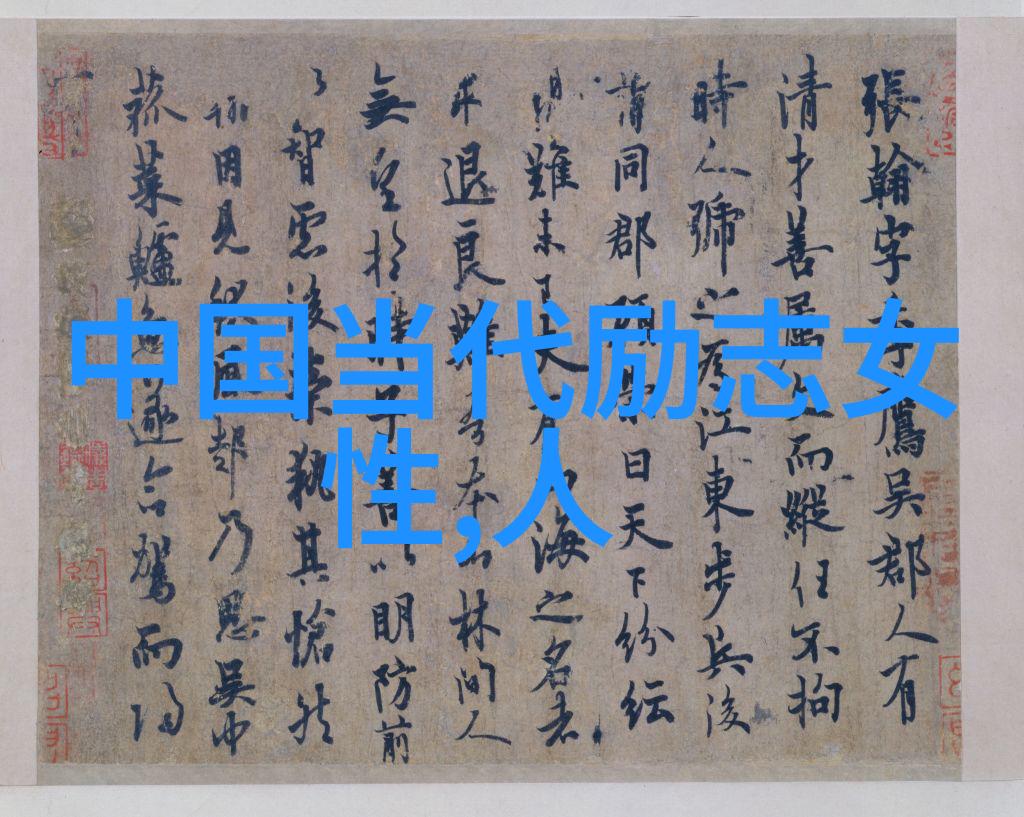 中国当代励志女
性,人
張翰字季鷹吳郡人有
清才善屬文而縱任不拘
時人號之為江東步兵後
同郡顧曰天下紛紜
難未已夫有海之名者
求退良難吾本山林間人
無望於時子善以明防前
以智慮後榮執其愴然
翰因見秋風起乃思吳中
菰菜鱸魚遂命駕而歸